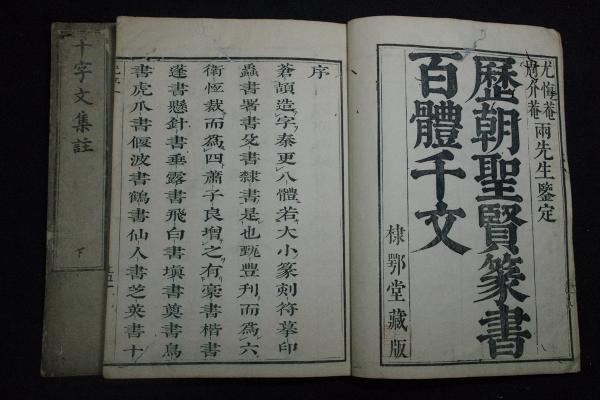 尤悔菴
尤介菴
兩先生鑒定
歷朝聖賢篆書
百體千文
棣鄂堂藏版
序
蒼頡造字秦更八體若大小篆刻符摹印
蟲書署書殳書隸書是也甄豐刋而爲六
衛恆裁而爲四蕭子良增之有藁書楷書
蓬書懸針書垂露書飛白書塡書奠書鳥
書虎爪書偃波書鶴書仙人書芝英書十
千字文集註
下